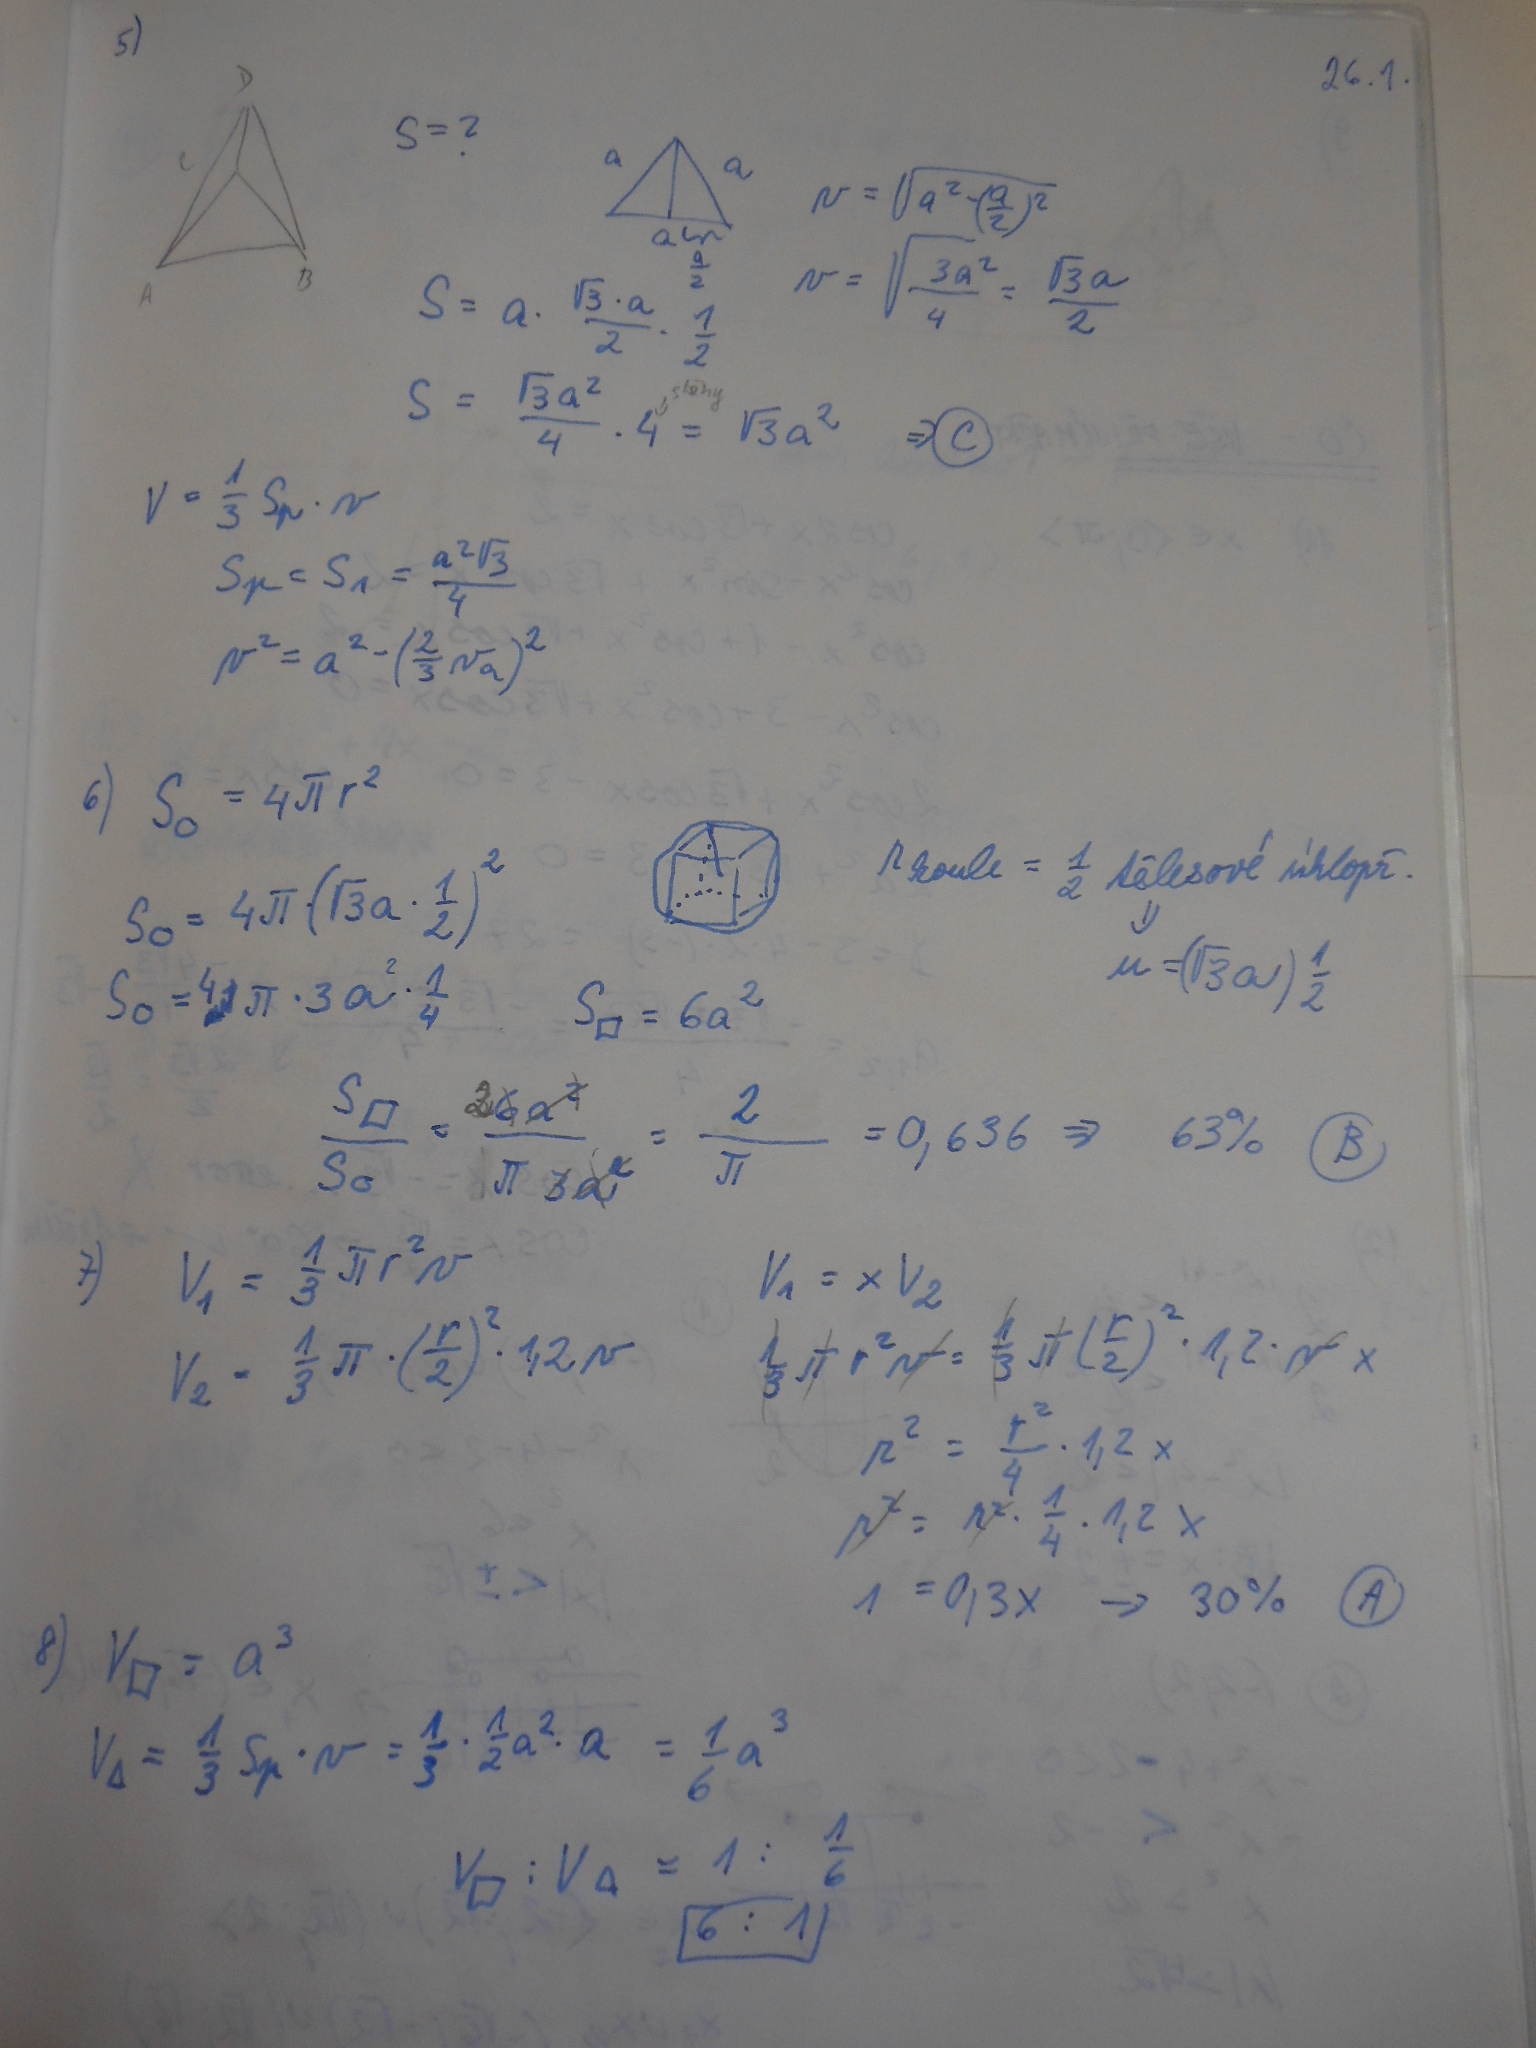 5)
26.1.
D
C
A
B
S = ?
a
a
a
a/2
v = √(a² - (a/2)²)
v = √(3a²/4) = √3a/2
S = a · √3·a/2 · 1/2
S = √3a²/4 · 4 = √3a² ⇒ C
stěny
V = 1/3 Sp · v
Sp = S₁ = a²√3/4
v² = a² - (2/3 va)²
6) S○ = 4πr²
S○ = 4π·(√3a · 1/2)²
r koule = 1/2 tělesové úhlopř.
⇓
u = (√3a) 1/2
S○ = 4π · 3a² · 1/4
S□ = 6a²
S□/S○ = 2 6a²/π 3a² = 2/π = 0,636 ⇒ 63% B
7) V₁ = 1/3 πr²v
V₂ = 1/3 π · (r/2)² · 1,2v
V₁ = xV₂
1/3 π r²v = 1/3 π (r/2)² · 1,2 · v x
r² = r²/4 · 1,2x
r² = r² · 1/4 · 1,2x
1 = 0,3x → 30% A
8) V□ = a³
V△ = 1/3 Sp · v = 1/3 · 1/2a² · a = 1/6 a³
V□ : V△ = 1 : 1/6
6 : 1